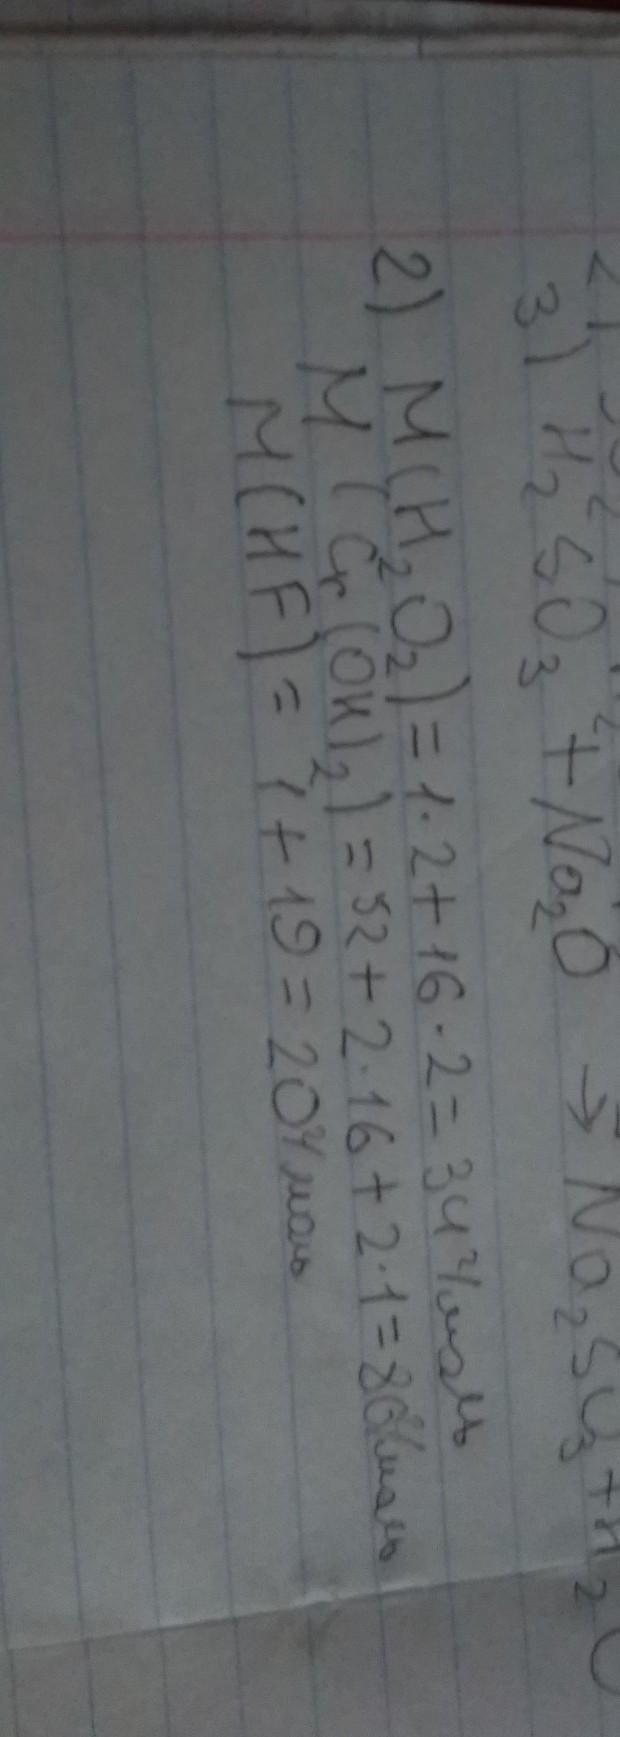 3) H₂SO₃ + Na₂O → Na₂SO₃ + H₂O
2) M(H₂O₂) = 1·2 + 16·2 = 34 г/моль
M(Cr(OH)₂) = 52 + 2·16 + 2·1 = 86 г/моль
M(HF) = 1 + 19 = 20 г/моль